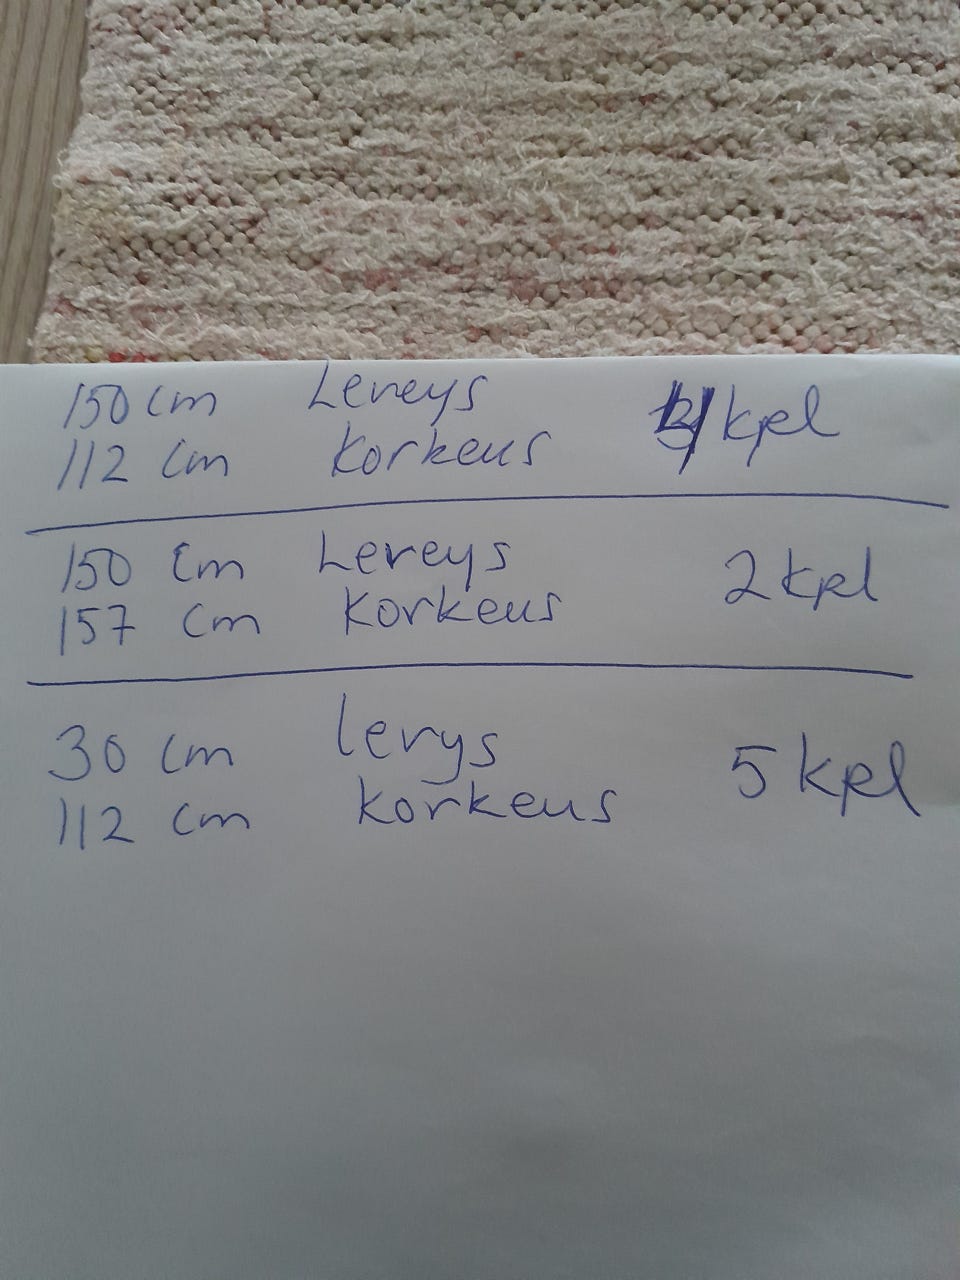 150 cm Lereys
112 cm korkeus kpl
150 cm Lereys
157 cm korkeus 2 kpl
30 cm lerys
112 cm korkeus 5 kpl